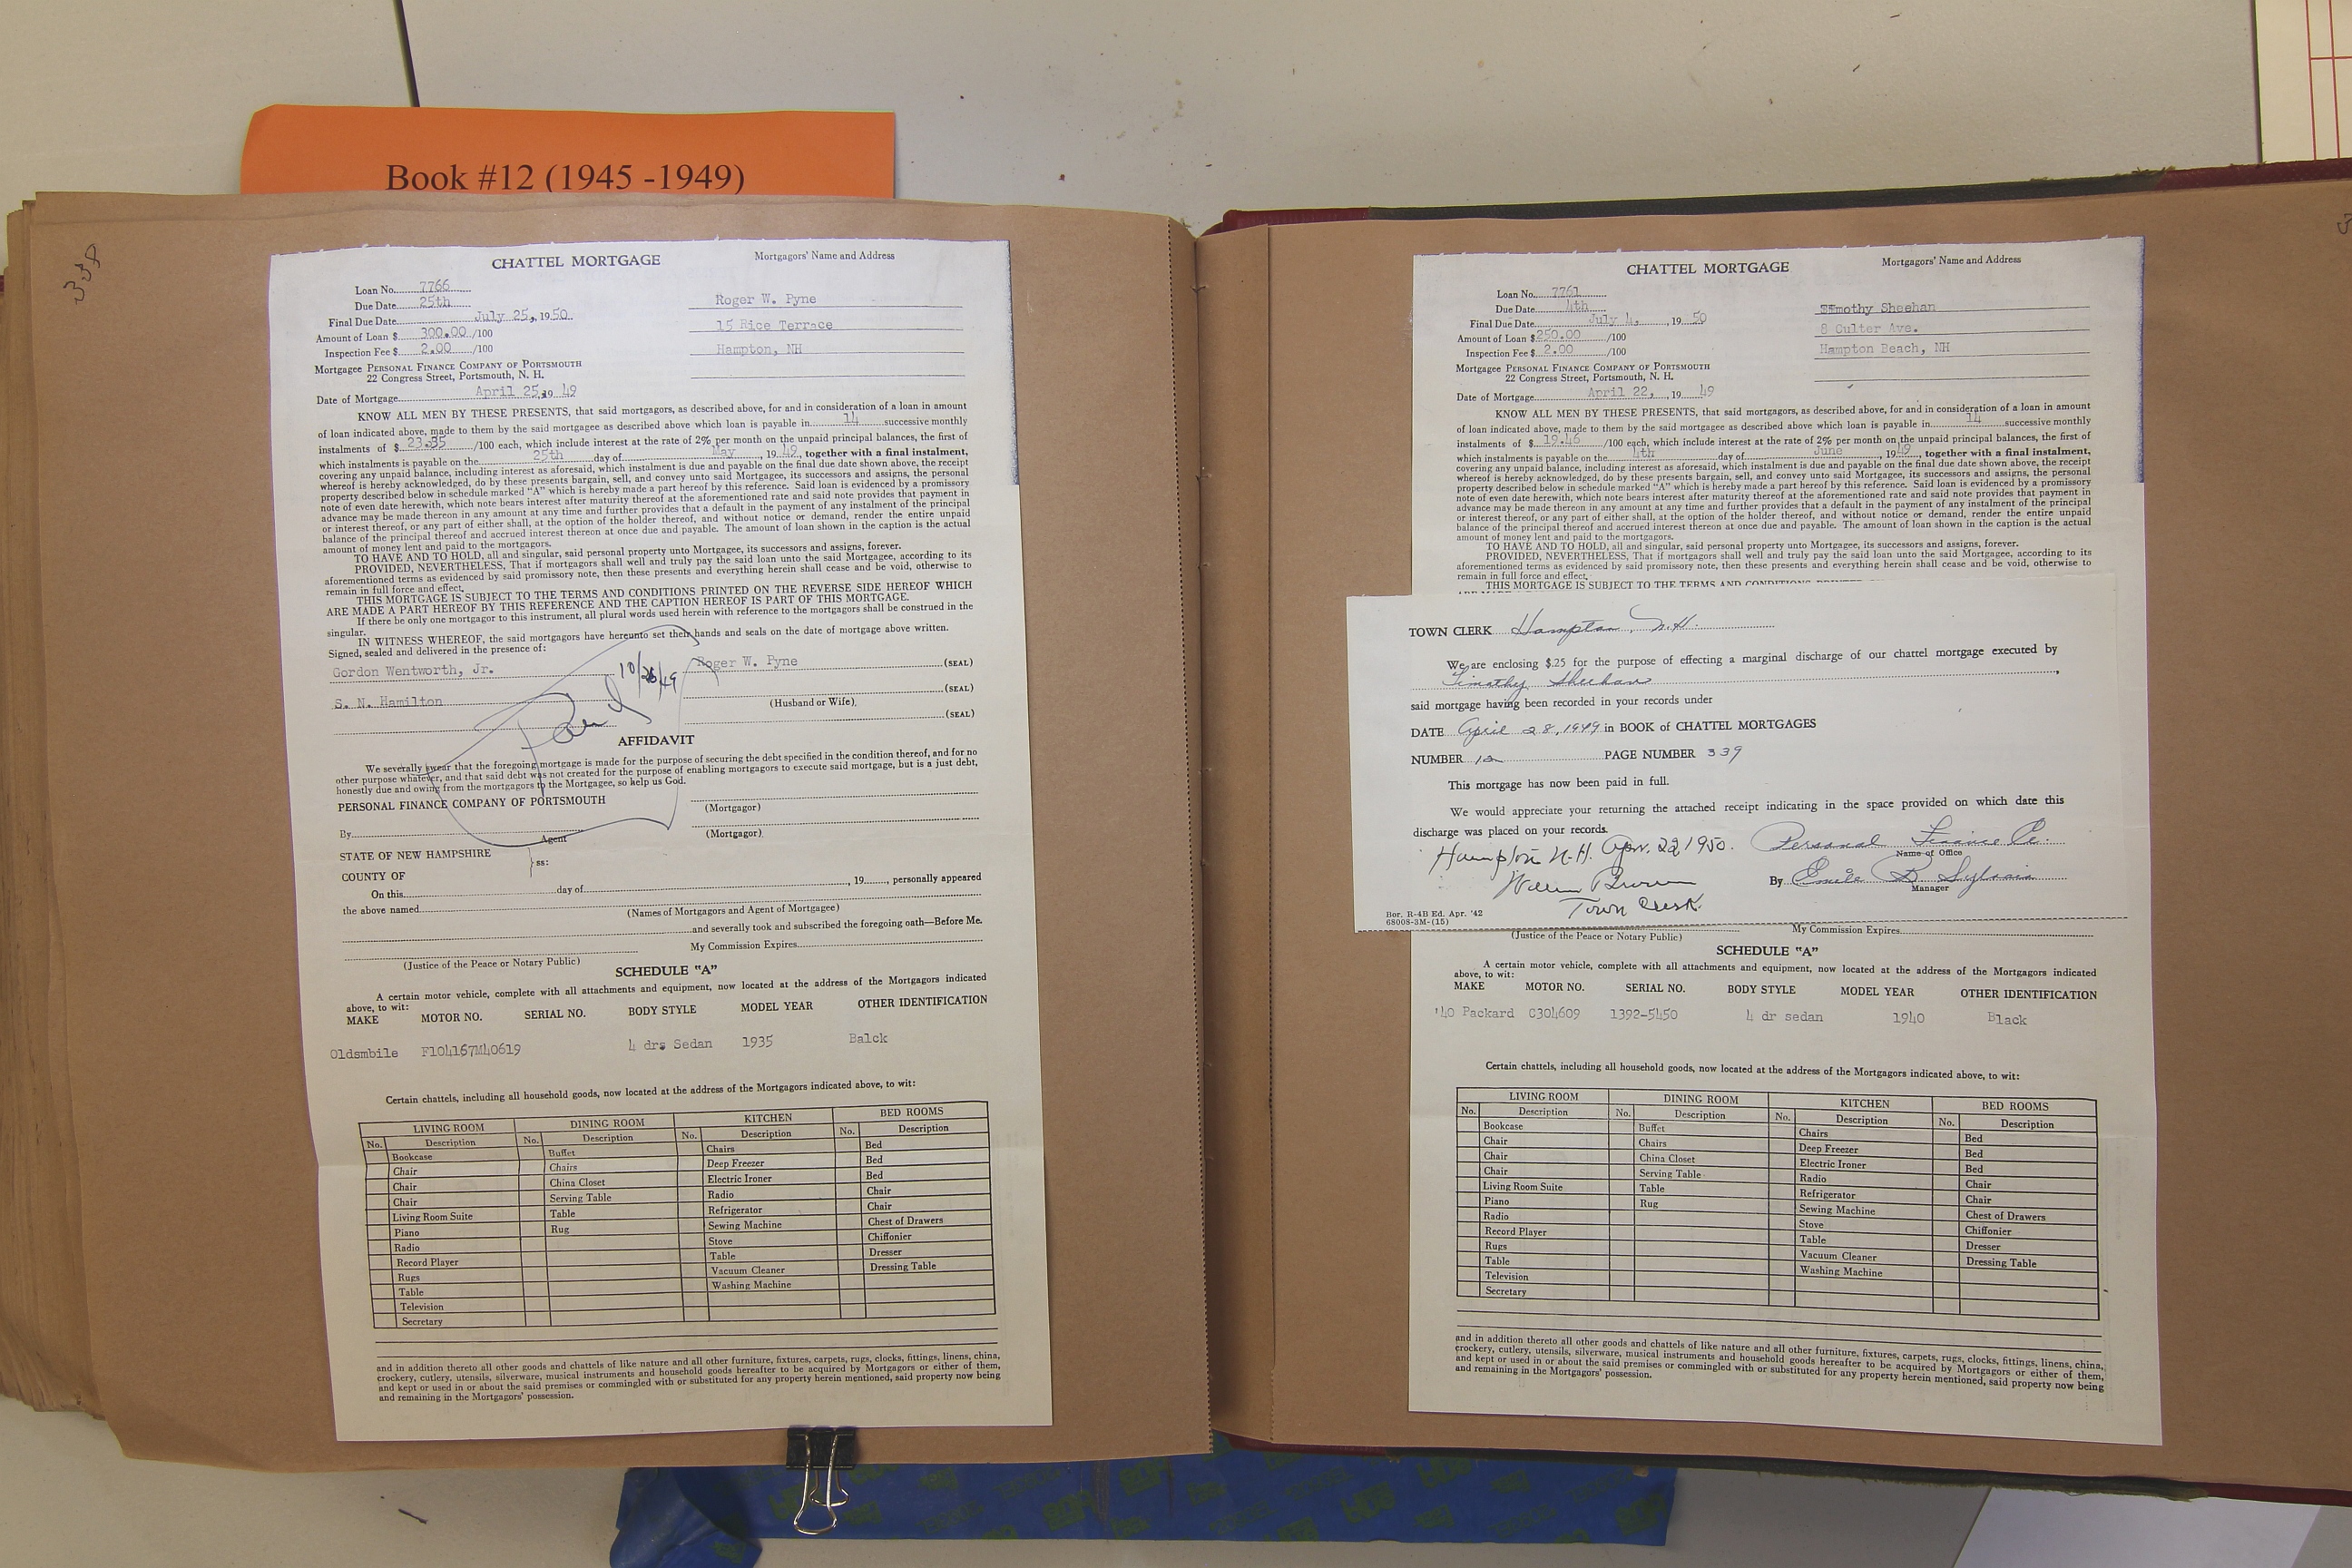 Book #12 (1945 -1949)
338
CHATTEL MORTGAGE
Mortgagors' Name and Address
Loan No. 7766
Due Date 25th
Final Due Date July 25, 1950
Amount of Loan $ 300.00 /100
Inspection Fee $ 2.00 /100
Mortgagee PERSONAL FINANCE COMPANY OF PORTSMOUTH
22 Congress Street, Portsmouth, N. H.
Date of Mortgage April 25, 19 49
Roger W. Pyne
15 Rice Terrace
Hampton, NH
KNOW ALL MEN BY THESE PRESENTS, that said mortgagors, as described above, for and in consideration of a loan in amount
of loan indicated above, made to them by the said mortgagee as described above which loan is payable in 14 successive monthly
instalments of $ 23.35 /100 each, which include interest at the rate of 2% per month on the unpaid principal balances, the first of
which instalments is payable on the 25th day of May, 19 49, together with a final instalment,
covering any unpaid balance, including interest as aforesaid, which instalment is due and payable on the final due date shown above, the receipt
whereof is hereby acknowledged, do by these presents bargain, sell, and convey unto said Mortgagee, its successors and assigns, the personal
property described below in schedule marked "A" which is hereby made a part hereof by this reference. Said loan is evidenced by a promissory
note of even date herewith, which note bears interest after maturity thereof at the aforementioned rate and said note provides that payment in
advance may be made thereon in any amount at any time and further provides that a default in the payment of any instalment of the principal
or interest thereof, or any part of either shall, at the option of the holder thereof, and without notice or demand, render the entire unpaid
balance of the principal thereof and accrued interest thereon at once due and payable. The amount of loan shown in the caption is the actual
amount of money lent and paid to the mortgagors.
TO HAVE AND TO HOLD, all and singular, said personal property unto Mortgagee, its successors and assigns, forever.
PROVIDED, NEVERTHELESS, That if mortgagors shall well and truly pay the said loan unto the said Mortgagee, according to its
aforementioned terms as evidenced by said promissory note, then these presents and everything herein shall cease and be void, otherwise to
remain in full force and effect.
THIS MORTGAGE IS SUBJECT TO THE TERMS AND CONDITIONS PRINTED ON THE REVERSE SIDE HEREOF WHICH
ARE MADE A PART HEREOF BY THIS REFERENCE AND THE CAPTION HEREOF IS PART OF THIS MORTGAGE.
If there be only one mortgagor to this instrument, all plural words used herein with reference to the mortgagors shall be construed in the
singular.
IN WITNESS WHEREOF, the said mortgagors have hereunto set their hands and seals on the date of mortgage above written.
Signed, sealed and delivered in the presence of:
Gordon Wentworth, Jr.
Roger W. Pyne (SEAL)
S. N. Hamilton
(SEAL)
(Husband or Wife)
(SEAL)
Paid 10/26/49
AFFIDAVIT
We severally swear that the foregoing mortgage is made for the purpose of securing the debt specified in the condition thereof, and for no
other purpose whatever, and that said debt was not created for the purpose of enabling mortgagors to execute said mortgage, but is a just debt,
honestly due and owing from the mortgagors to the Mortgagee, so help us God.
PERSONAL FINANCE COMPANY OF PORTSMOUTH
(Mortgagor)
By
Agent
(Mortgagor)
STATE OF NEW HAMPSHIRE
ss:
COUNTY OF
On this day of , 19 , personally appeared
the above named
(Names of Mortgagors and Agent of Mortgagee)
and severally took and subscribed the foregoing oath—Before Me.
My Commission Expires
(Justice of the Peace or Notary Public)
SCHEDULE "A"
A certain motor vehicle, complete with all attachments and equipment, now located at the address of the Mortgagors indicated
above, to wit:
MAKE MOTOR NO. SERIAL NO. BODY STYLE MODEL YEAR OTHER IDENTIFICATION
Oldsmbile F104167M40619 4 drs Sedan 1935 Balck
Certain chattels, including all household goods, now located at the address of the Mortgagors indicated above, to wit:
LIVING ROOM DINING ROOM KITCHEN BED ROOMS
No. Description No. Description No. Description No. Description
Bookcase Buffet Chairs Bed
Chair Chairs Deep Freezer Bed
Chair China Closet Electric Ironer Bed
Chair Serving Table Radio Chair
Living Room Suite Table Refrigerator Chair
Piano Rug Sewing Machine Chest of Drawers
Radio Stove Chiffonier
Record Player Table Dresser
Rugs Vacuum Cleaner Dressing Table
Table Washing Machine
Television
Secretary
and in addition thereto all other goods and chattels of like nature and all other furniture, fixtures, carpets, rugs, clocks, fittings, linens, china,
crockery, cutlery, utensils, silverware, musical instruments and household goods hereafter to be acquired by Mortgagors or either of them,
and kept or used in or about the said premises or commingled with or substituted for any property herein mentioned, said property now being
and remaining in the Mortgagors' possession.
CHATTEL MORTGAGE
Mortgagors' Name and Address
Loan No. 7761
Due Date 4th
Final Due Date July 4, 19 50
Amount of Loan $ 250.00 /100
Inspection Fee $ 2.00 /100
Mortgagee PERSONAL FINANCE COMPANY OF PORTSMOUTH
22 Congress Street, Portsmouth, N. H.
Date of Mortgage April 22, 19 49
Timothy Sheehan
8 Culter Ave.
Hampton Beach, NH
KNOW ALL MEN BY THESE PRESENTS, that said mortgagors, as described above, for and in consideration of a loan in amount
of loan indicated above, made to them by the said mortgagee as described above which loan is payable in 14 successive monthly
instalments of $ 19.46 /100 each, which include interest at the rate of 2% per month on the unpaid principal balances, the first of
which instalments is payable on the 4th day of June, 19 49, together with a final instalment,
covering any unpaid balance, including interest as aforesaid, which instalment is due and payable on the final due date shown above, the receipt
whereof is hereby acknowledged, do by these presents bargain, sell, and convey unto said Mortgagee, its successors and assigns, the personal
property described below in schedule marked "A" which is hereby made a part hereof by this reference. Said loan is evidenced by a promissory
note of even date herewith, which note bears interest after maturity thereof at the aforementioned rate and said note provides that payment in
advance may be made thereon in any amount at any time and further provides that a default in the payment of any instalment of the principal
or interest thereof, or any part of either shall, at the option of the holder thereof, and without notice or demand, render the entire unpaid
balance of the principal thereof and accrued interest thereon at once due and payable. The amount of loan shown in the caption is the actual
amount of money lent and paid to the mortgagors.
TO HAVE AND TO HOLD, all and singular, said personal property unto Mortgagee, its successors and assigns, forever.
PROVIDED, NEVERTHELESS, That if mortgagors shall well and truly pay the said loan unto the said Mortgagee, according to its
aforementioned terms as evidenced by said promissory note, then these presents and everything herein shall cease and be void, otherwise to
remain in full force and effect.
THIS MORTGAGE IS SUBJECT TO THE TERMS AND CONDITIONS
TOWN CLERK Hampton, N.H.
We are enclosing $.25 for the purpose of effecting a marginal discharge of our chattel mortgage executed by
Timothy Sheehan,
said mortgage having been recorded in your records under
DATE April 28, 1949 in BOOK of CHATTEL MORTGAGES
NUMBER 12 PAGE NUMBER 339
This mortgage has now been paid in full.
We would appreciate your returning the attached receipt indicating in the space provided on which date this
discharge was placed on your records.
Hampton N.H. Apr. 22 1950.
Personal Finance Co.
Name of Office
William Brown
By Emile B Sylvain
Manager
Town Clerk.
Bor. R-4B Ed. Apr. '42
6800S-3M-(15)
My Commission Expires
(Justice of the Peace or Notary Public)
SCHEDULE "A"
A certain motor vehicle, complete with all attachments and equipment, now located at the address of the Mortgagors indicated
above, to wit:
MAKE MOTOR NO. SERIAL NO. BODY STYLE MODEL YEAR OTHER IDENTIFICATION
'40 Packard C304609 1392-5450 4 dr sedan 1940 Black
Certain chattels, including all household goods, now located at the address of the Mortgagors indicated above, to wit:
LIVING ROOM DINING ROOM KITCHEN BED ROOMS
No. Description No. Description No. Description No. Description
Bookcase Buffet Chairs Bed
Chair Chairs Deep Freezer Bed
Chair China Closet Electric Ironer Bed
Chair Serving Table Radio Chair
Living Room Suite Table Refrigerator Chair
Piano Rug Sewing Machine Chest of Drawers
Radio Stove Chiffonier
Record Player Table Dresser
Rugs Vacuum Cleaner Dressing Table
Table Washing Machine
Television
Secretary
and in addition thereto all other goods and chattels of like nature and all other furniture, fixtures, carpets, rugs, clocks, fittings, linens, china,
crockery, cutlery, utensils, silverware, musical instruments and household goods hereafter to be acquired by Mortgagors or either of them,
and kept or used in or about the said premises or commingled with or substituted for any property herein mentioned, said property now being
and remaining in the Mortgagors' possession.